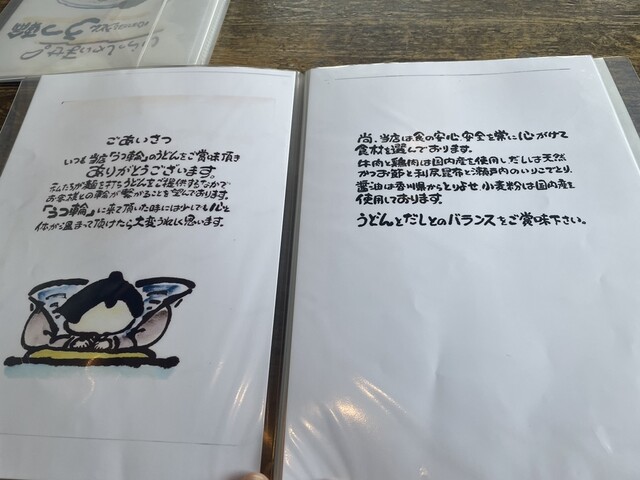 いらっしゃいませ。
うつ輪
ごあいさつ
いつも当店「うつ輪」のうどんをご賞味頂き
ありがとうございます。
私たちが麺を打ちうどんをご提供するなかで
お客様との輪が繋がることを望んでおります。
「うつ輪」に来て頂いた時には少しでも心と
体が温まって頂けたら大変うれしく思います。
尚、当店は食の安心、安全を常に心がけて
食材を選んでおります。
牛肉と鶏肉は国内産を使用しだしは天然
かつお節と利尻昆布と瀬戸内のいりこでとり、
醤油は香川県からとりよせ、小麦粉は国内産を
使用しております。
うどんとだしとのバランスをご賞味下さい。